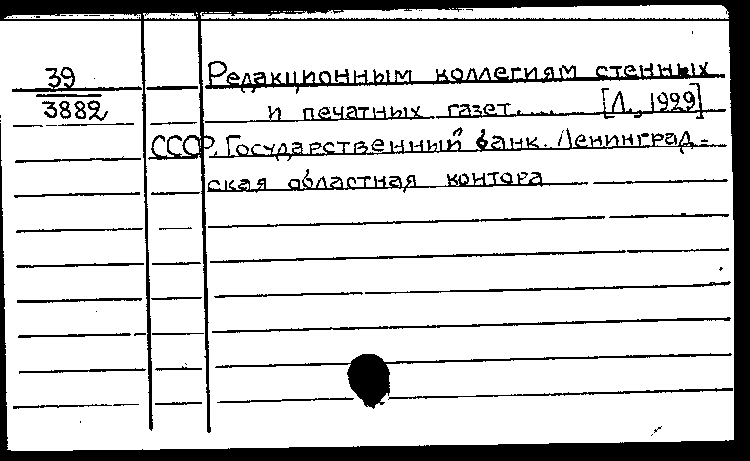 39
3882
Редакционным коллегиям стенных
и печатных газет..... [Л., 1929]
СССР. Государственный банк. Ленинград-
ская областная контора